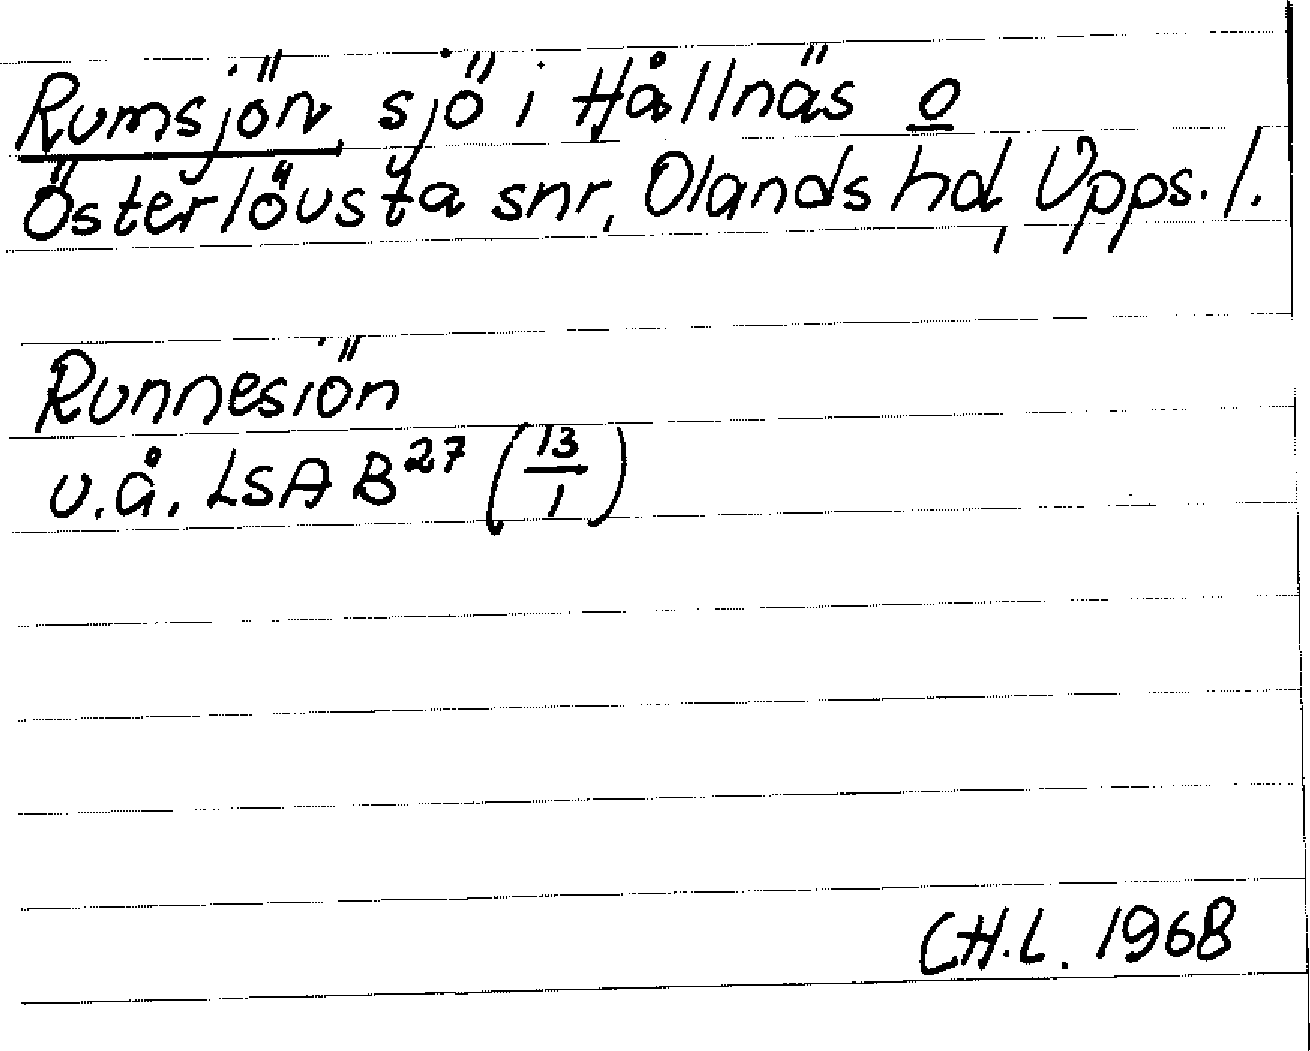 Rumsjön, sjö i Hållnäs o
Österlövsta snr, Olands hd, Upps. l.
Runnesiön
u.å. LSA B27 (13/1)
CH.L. 1968